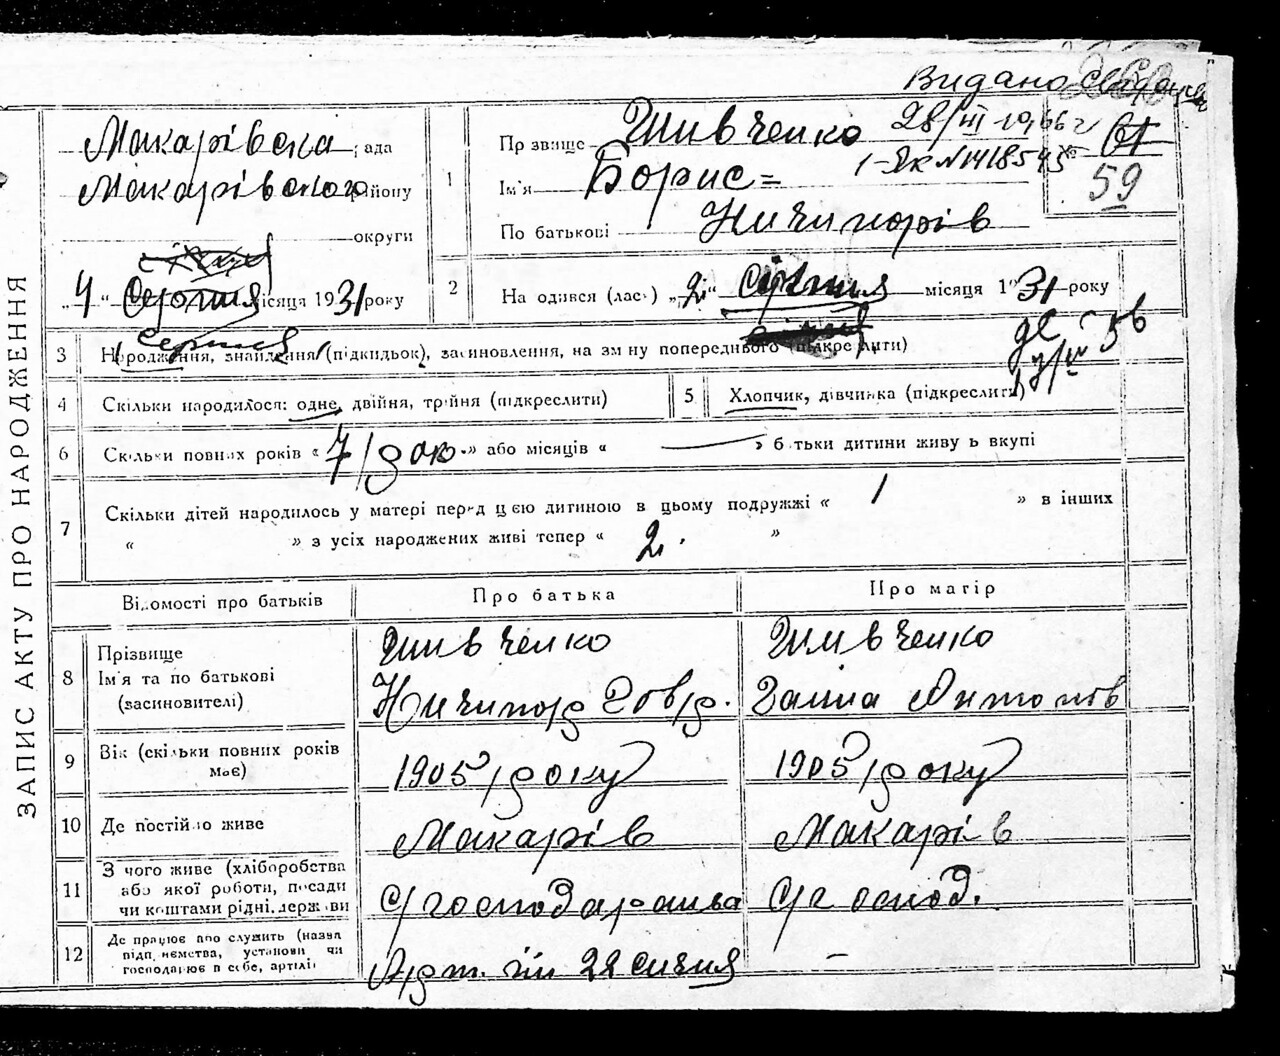 Видано свідоц
28/III-1966 г
1-ЯК №1418545
№ 61
59
ЗАПИС АКТУ ПРО НАРОДЖЕННЯ
Макарівска рада
Макарівского району
округи
„4“ Серпня місяця 1931 року
Серпня
1 Прізвище Шивченко
Ім'я Борис=
По батькові Ничипорів
2 На одився (лась) „2“ серпня місяця 1931 року
3 Народження, знайдення (підкидьок), засиновлення, на зміну попереднього (підкреслити)
4 Скільки народилося: одне, двійня, трійня (підкреслити)
5 Хлопчик, дівчинка (підкреслити)
6 Скільки повних років « 7 рок. » або місяців « — » батьки дитини живуть вкупі
7 Скільки дітей народилось у матері перед цією дитиною в цьому подружжі « 1 » в інших
« » з усіх народжених живі тепер « 2. »
Відомості про батьків
Про батька
Про матір
8 Прізвище
Ім'я та по батькові
(засиновителі)
Шивченко
Ничипор
Шивченко
Ганна Антонів
9 Вік (скільки повних років має)
1905 року
1905 року
10 Де постійно живе
Макарів
Макарів
11 З чого живе (хліборобства
або якої роботи, посади
чи коштами рідні, держави
С/господарства
С/господ.
12 Де працює або служить (назва
підприємства, установи чи
господарює в себе, артілі
Арт. ім 22 січня
—